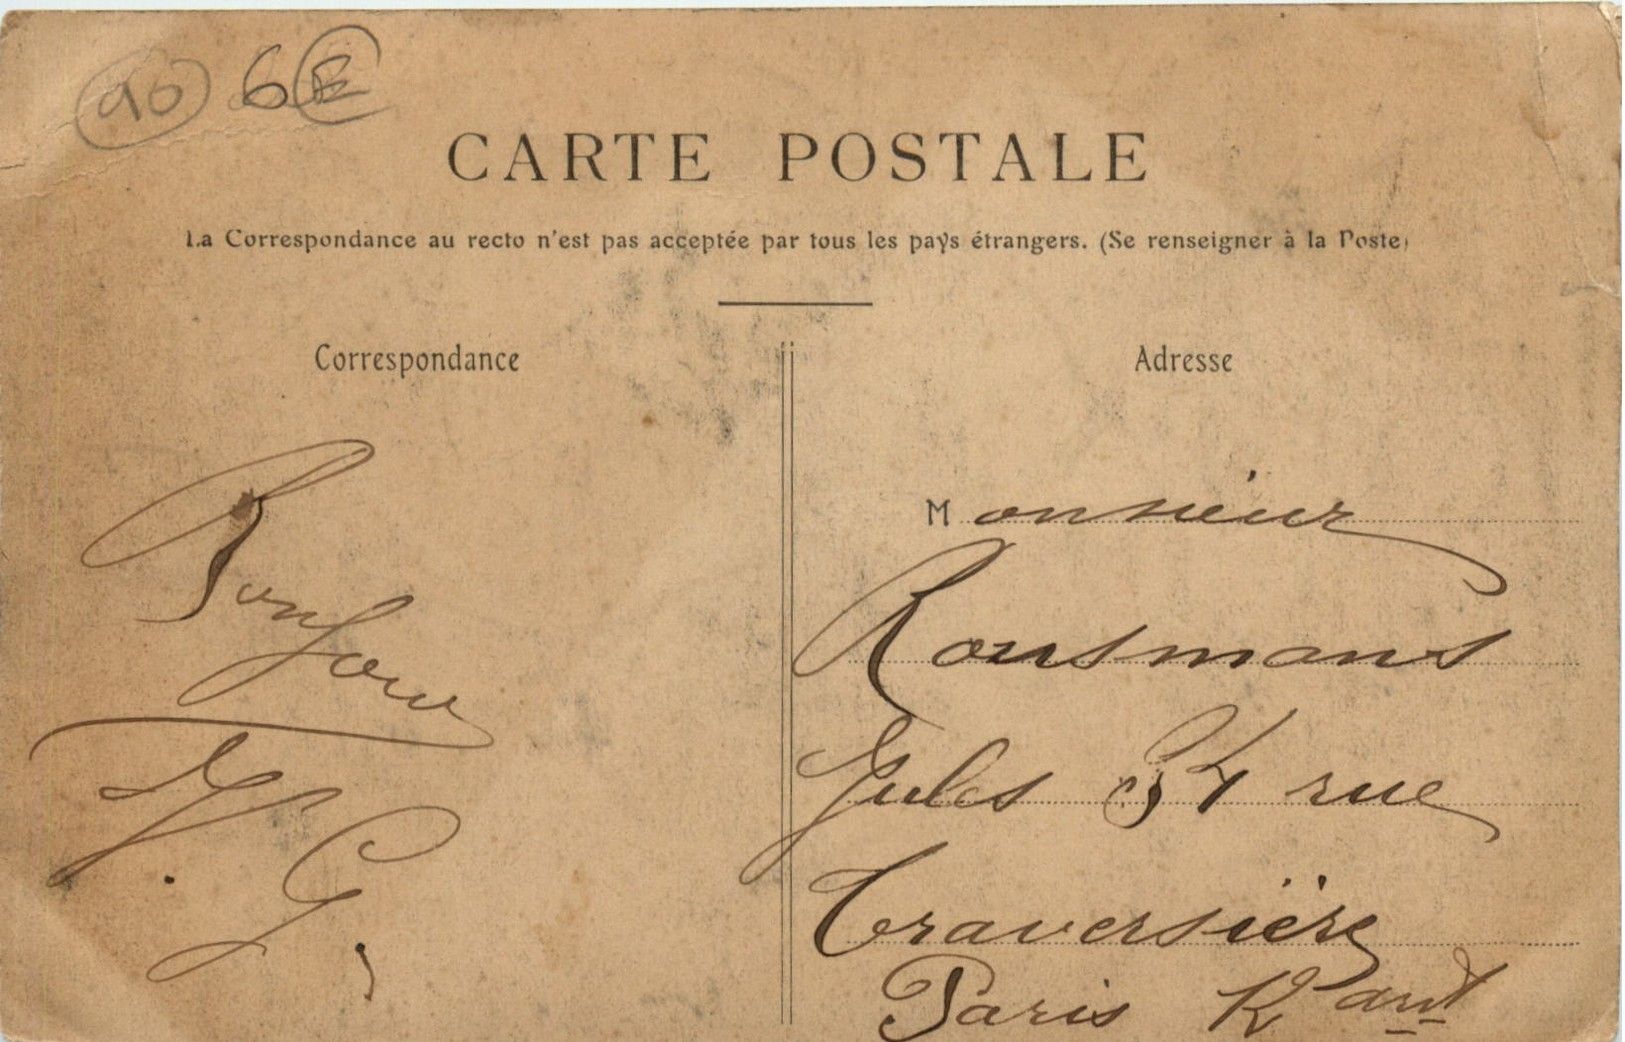 90 6 E
CARTE POSTALE
La Correspondance au recto n'est pas acceptée par tous les pays étrangers. (Se renseigner à la Poste)
Correspondance
Bonjour
G.
Adresse
Monsieur
Rousmans
Jules 34 rue
Traversière
Paris